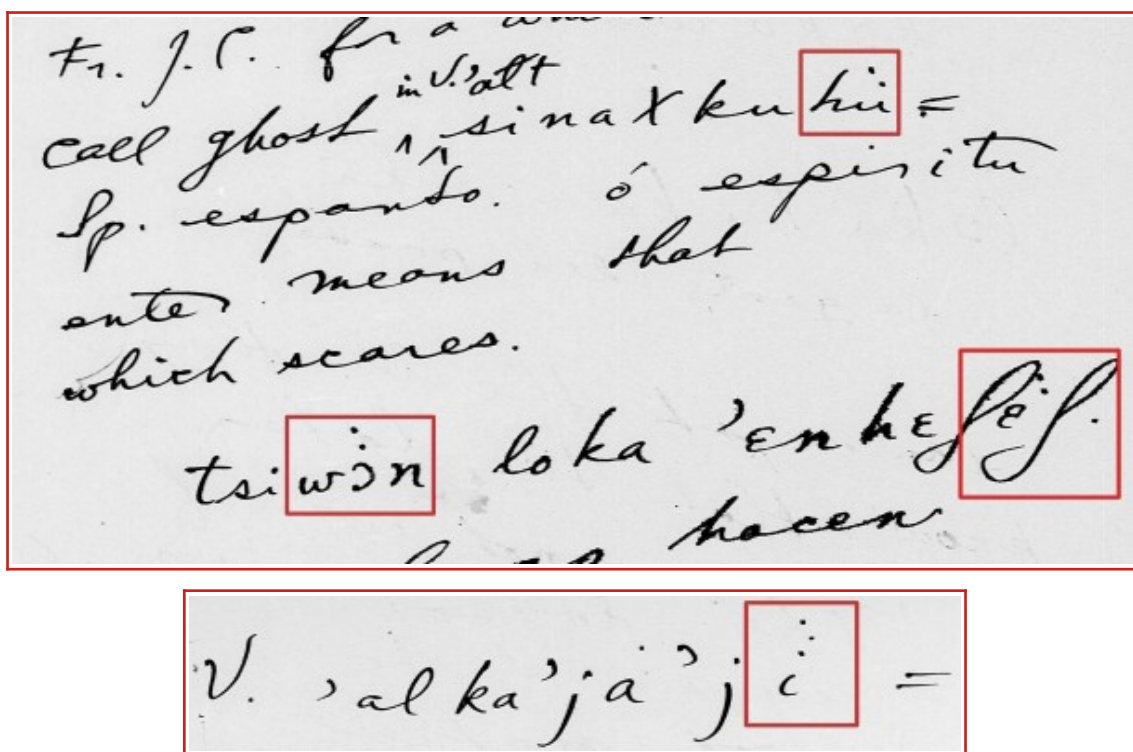 Fr. J. C. for a
in V. ’alt
call ghost ‸ sinaXkuhu̇ =
Sp. espanto. ó espiritu
means that
which scares.
tsiwɔ̈n loka ’ɛnhɛʃɛ̈ʃ.
hacen
V. ’alka’ja’ji̇ =